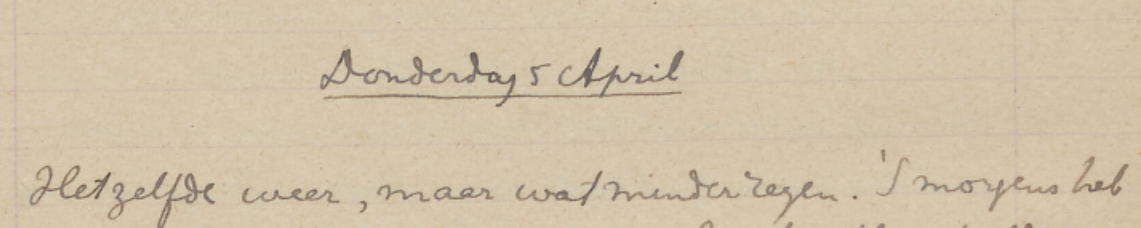 Donderdag 5 April
Hetzelfde weer, maar wat minder regen. 'S morgens heb